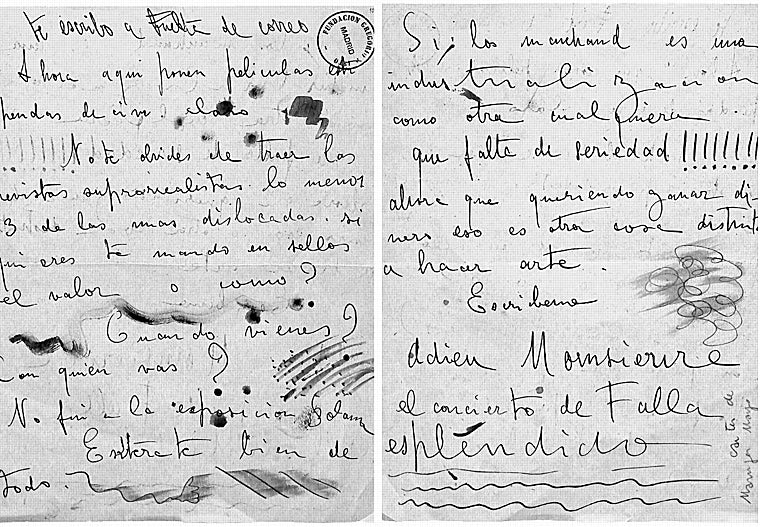 te escribo a fuelta de correo
FUNDACION GREGORIO
MADRID
Ahora aqui ponen peliculas
pendas de cine. claro
!!!!!! No te olvides de traer las
revistas suprarrealistas. lo menos
3 de las mas dislocadas. si
quieres te mando en sellos
el valor o como?
Cuando vienes?
Con quien vas?
No fui a la exposicion Solana
Enterate bien de
todo.
Si, los marchand es una
industrializacion
como otra cualquiera
que falta de seriedad !!!!!!!!
ahora que queriendo ganar di-
nero eso es otra cosa distinta
a hacer arte.
Escribeme
Adieu Monsieure
el concierto de Falla
esplendido